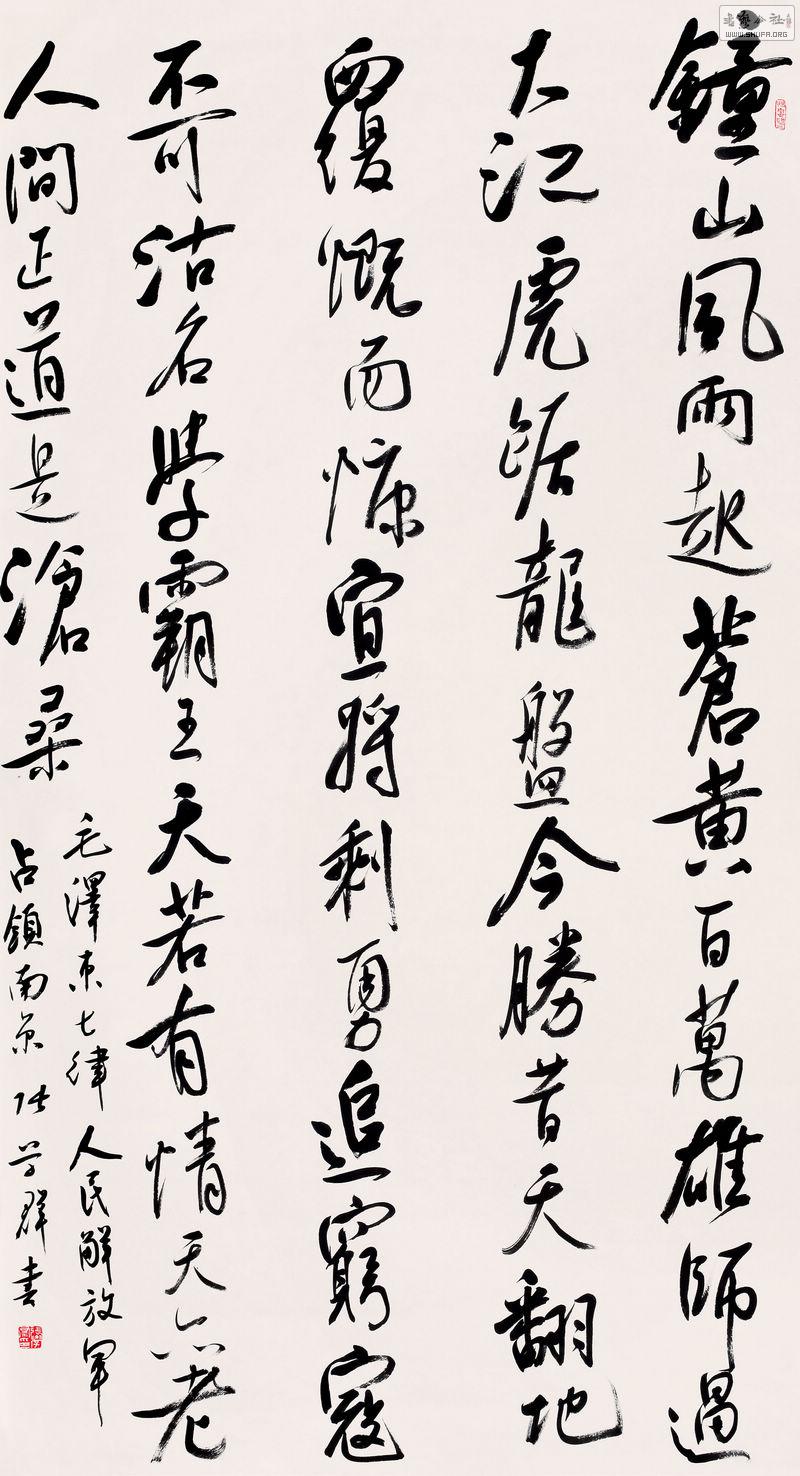 鐘山風雨起蒼黃百萬雄師過
大江虎踞龍盤今勝昔天翻地
覆慨而慷宜將剩勇追窮寇
不可沽名學霸王天若有情天亦老
人間正道是滄桑
毛澤東七律人民解放軍
占領南京 张学群書
WWW.SHUFA.ORG